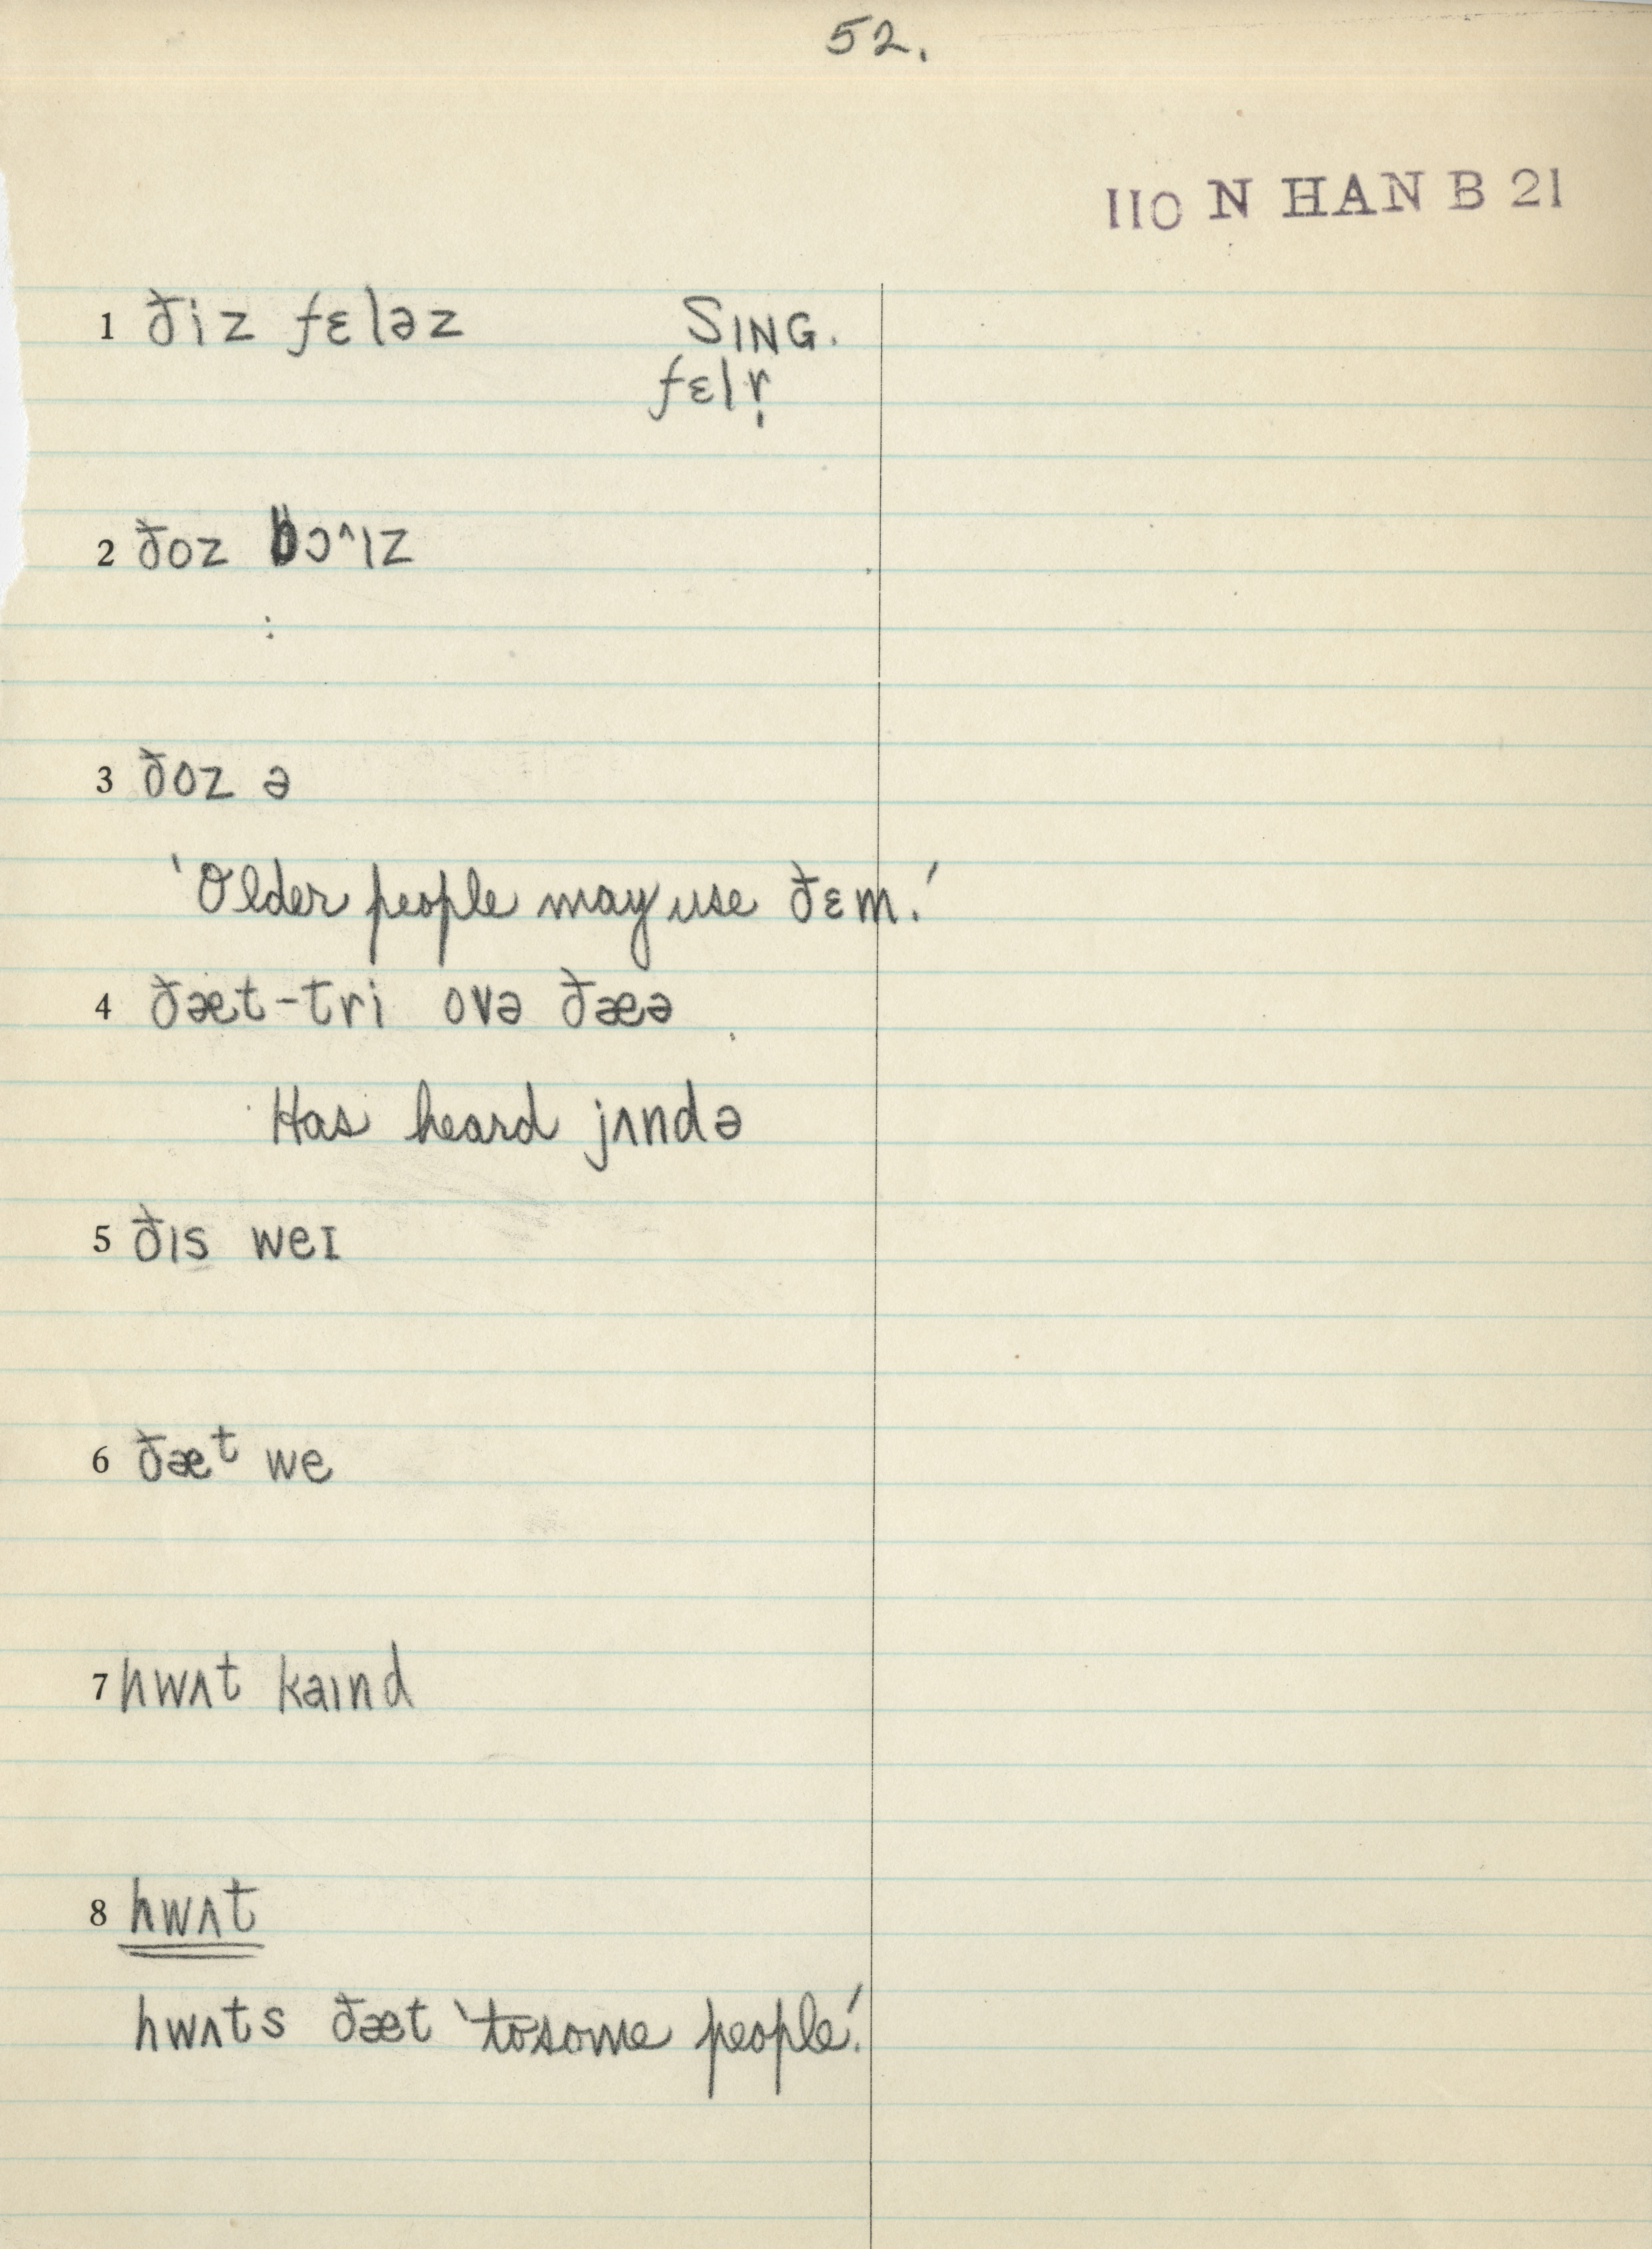 52.
110 N HAN B 21
1 ðiz fɛləz SING.
fɛlr̩
2 ðoz bɔ^ɪz
3 ðoz ə
'Older people may use ðɛm.'
4 ðæt-tri ovə ðæə
Has heard jʌndə
5 ðɪs weɪ
6 ðæᵗ we
7 hwʌt kaɪnd
8 hwʌt
hwʌts ðæt 'to some people'.